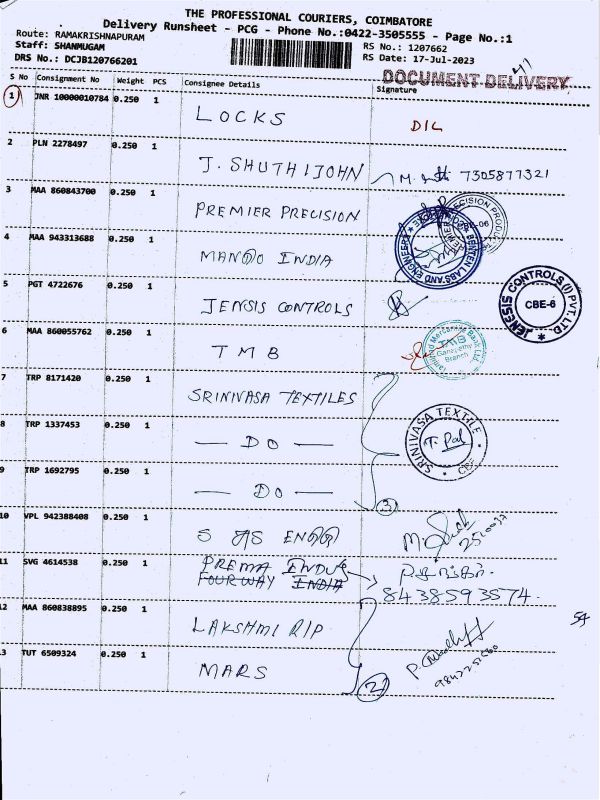 THE PROFESSIONAL COURIERS, COIMBATORE
Delivery Runsheet - PCG - Phone No.:0422-3505555 - Page No.:1
Route: RAMAKRISHNAPURAM
Staff: SHANMUGAM
DRS No.: DCJB120766201
RS No.: 1207662
RS Date: 17-Jul-2023
DOCUMENT DELIVERY
S No Consignment No Weight PCS Consignee Details Signature
1 JNR 10000010784 0.250 1 LOCKS D/L
2 PLN 2278497 0.250 1 J. SHUTHIJOHN 7305877321
3 MAA 860843700 0.250 1 PREMIER PRECISION
4 MAA 943313688 0.250 1 INDIA
BENTEN LABS AND ENGINEERS
5 PGT 4722676 0.250 1 JENSIS CONTROLS
JENSIS CONTROLS (I) PVT. LTD
CBE-6
6 MAA 860055762 0.250 1 TMB
Tamilnad Mercantile Bank Ltd.
TMB
Ganapathy
Branch
7 TRP 8171420 0.250 1 SRINIVASA TEXTILES
SRINIVASA TEXTILE
CBE
8 TRP 1337453 0.250 1 — DO —
9 TRP 1692795 0.250 1 — DO —
3
10 VPL 942388408 0.250 1
11 SVG 4614538 0.250 1 PREMA
FOUR WAY INDIA
8438593574.
12 MAA 860838895 0.250 1 LAKSHMI RIP
54
13 TUT 6509324 0.250 1 MARS
2